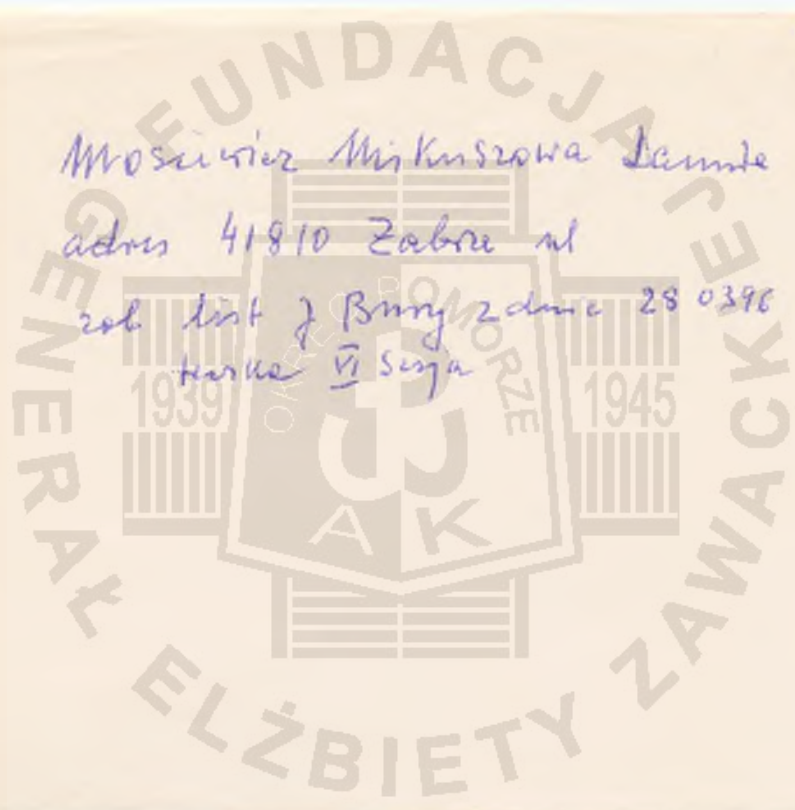 Mościwicz Mikuszowa Danuta
adres 41810 Zabrze ul
zob list J Bury z dnia 28 03 96
teczka VI Sesja
FUNDACJA GENERAŁ ELŻBIETY ZAWACKIEJ
OKRĘG POMORZE
1939 1945
AK